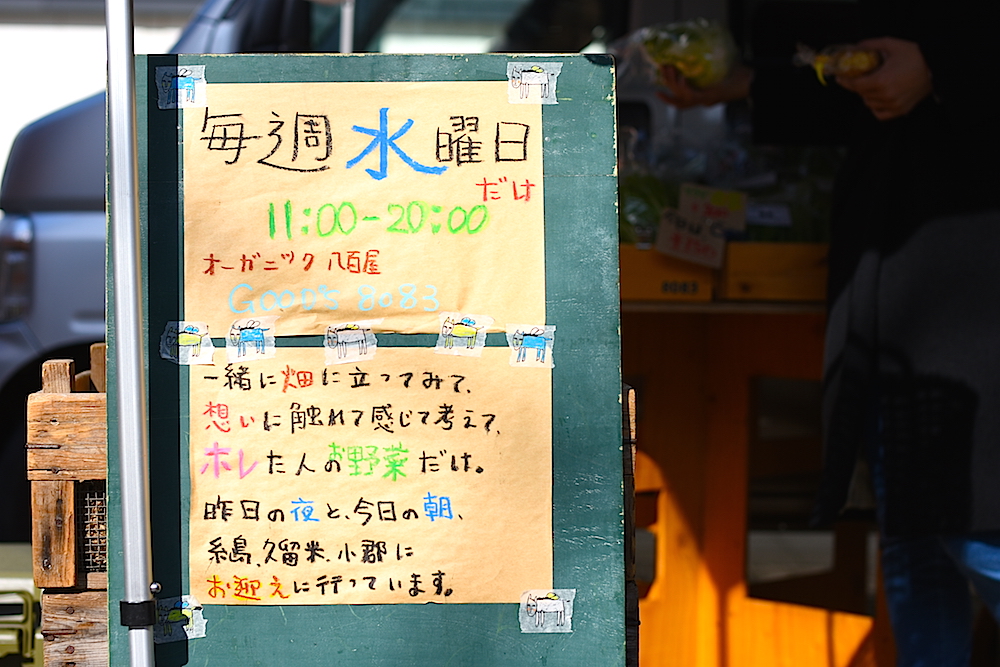 毎週水曜日
だけ
11:00-20:00
オーガニック八百屋
GOOD'S 8083
一緒に畑に立ってみて、
想いに触れて感じて考えて、
ホレた人のお野菜だけ。
昨日の夜と、今日の朝、
糸島、久留米、小郡に
お迎えに行っています。
8083